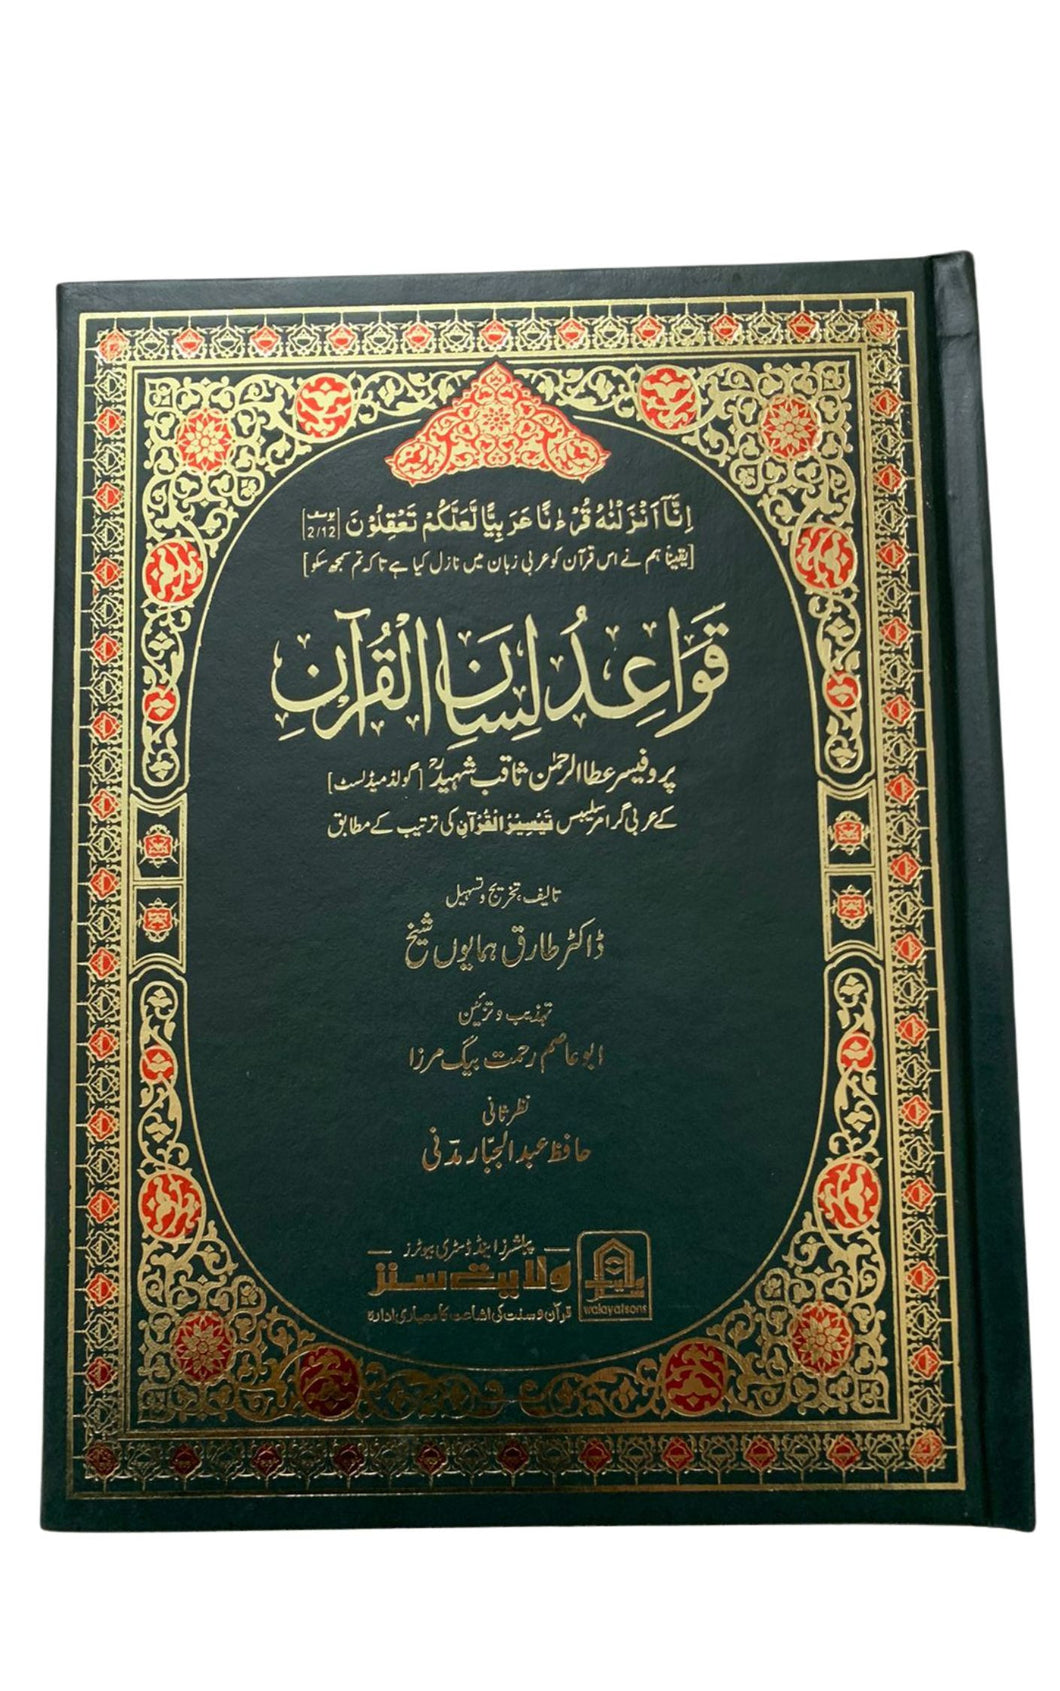 اِنَّآ اَنْزَلْنٰهُ قُرْءٰنًا عَرَبِيًّا لَّعَلَّكُمْ تَعْقِلُوْنَ [یوسف 2/12]
[یقیناً ہم نے اس قرآن کو عربی زبان میں نازل کیا ہے تاکہ تم سمجھ سکو]
قَوَاعِدُ لِسَانِ الْقُرآنِ
پروفیسر عطاالرحمٰن ثاقب شہیدؒ [گولڈ میڈلسٹ]
کے عربی گرامر سلیبس تَیْسِیْرُ الْقُرْآنِ کی ترتیب کے مطابق
تالیف، تخریج و تسہیل
ڈاکٹر طارق ہمایوں شیخ
تہذیب و تزئین
ابو عاصم رحمت بیگ مرزا
نظر ثانی
حافظ عبد الجبّار مدَنی
پبلشرز اینڈ ڈسٹری بیوٹرز
ولایت سنز
قرآن و سنت کی اشاعت کا معیاری ادارہ
walayatsons